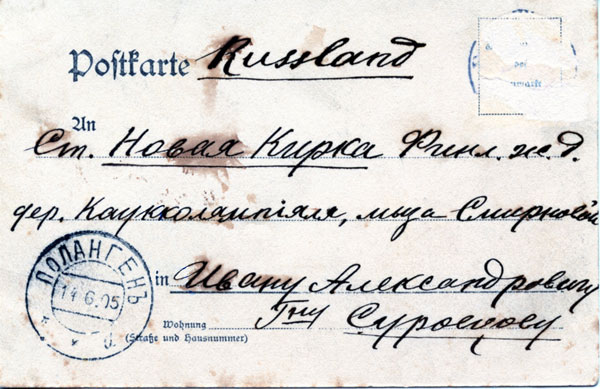 Postkarte Russland
An
Ст. Новая Кирка Финл. ж. д.
дер. Каукколампіяля, мыза Смирновой
ПОЛАНГЕНЪ
14 6.05
in Ивану Александровичу
Wohnung
Гну Суровцову
(Straße und Hausnummer)